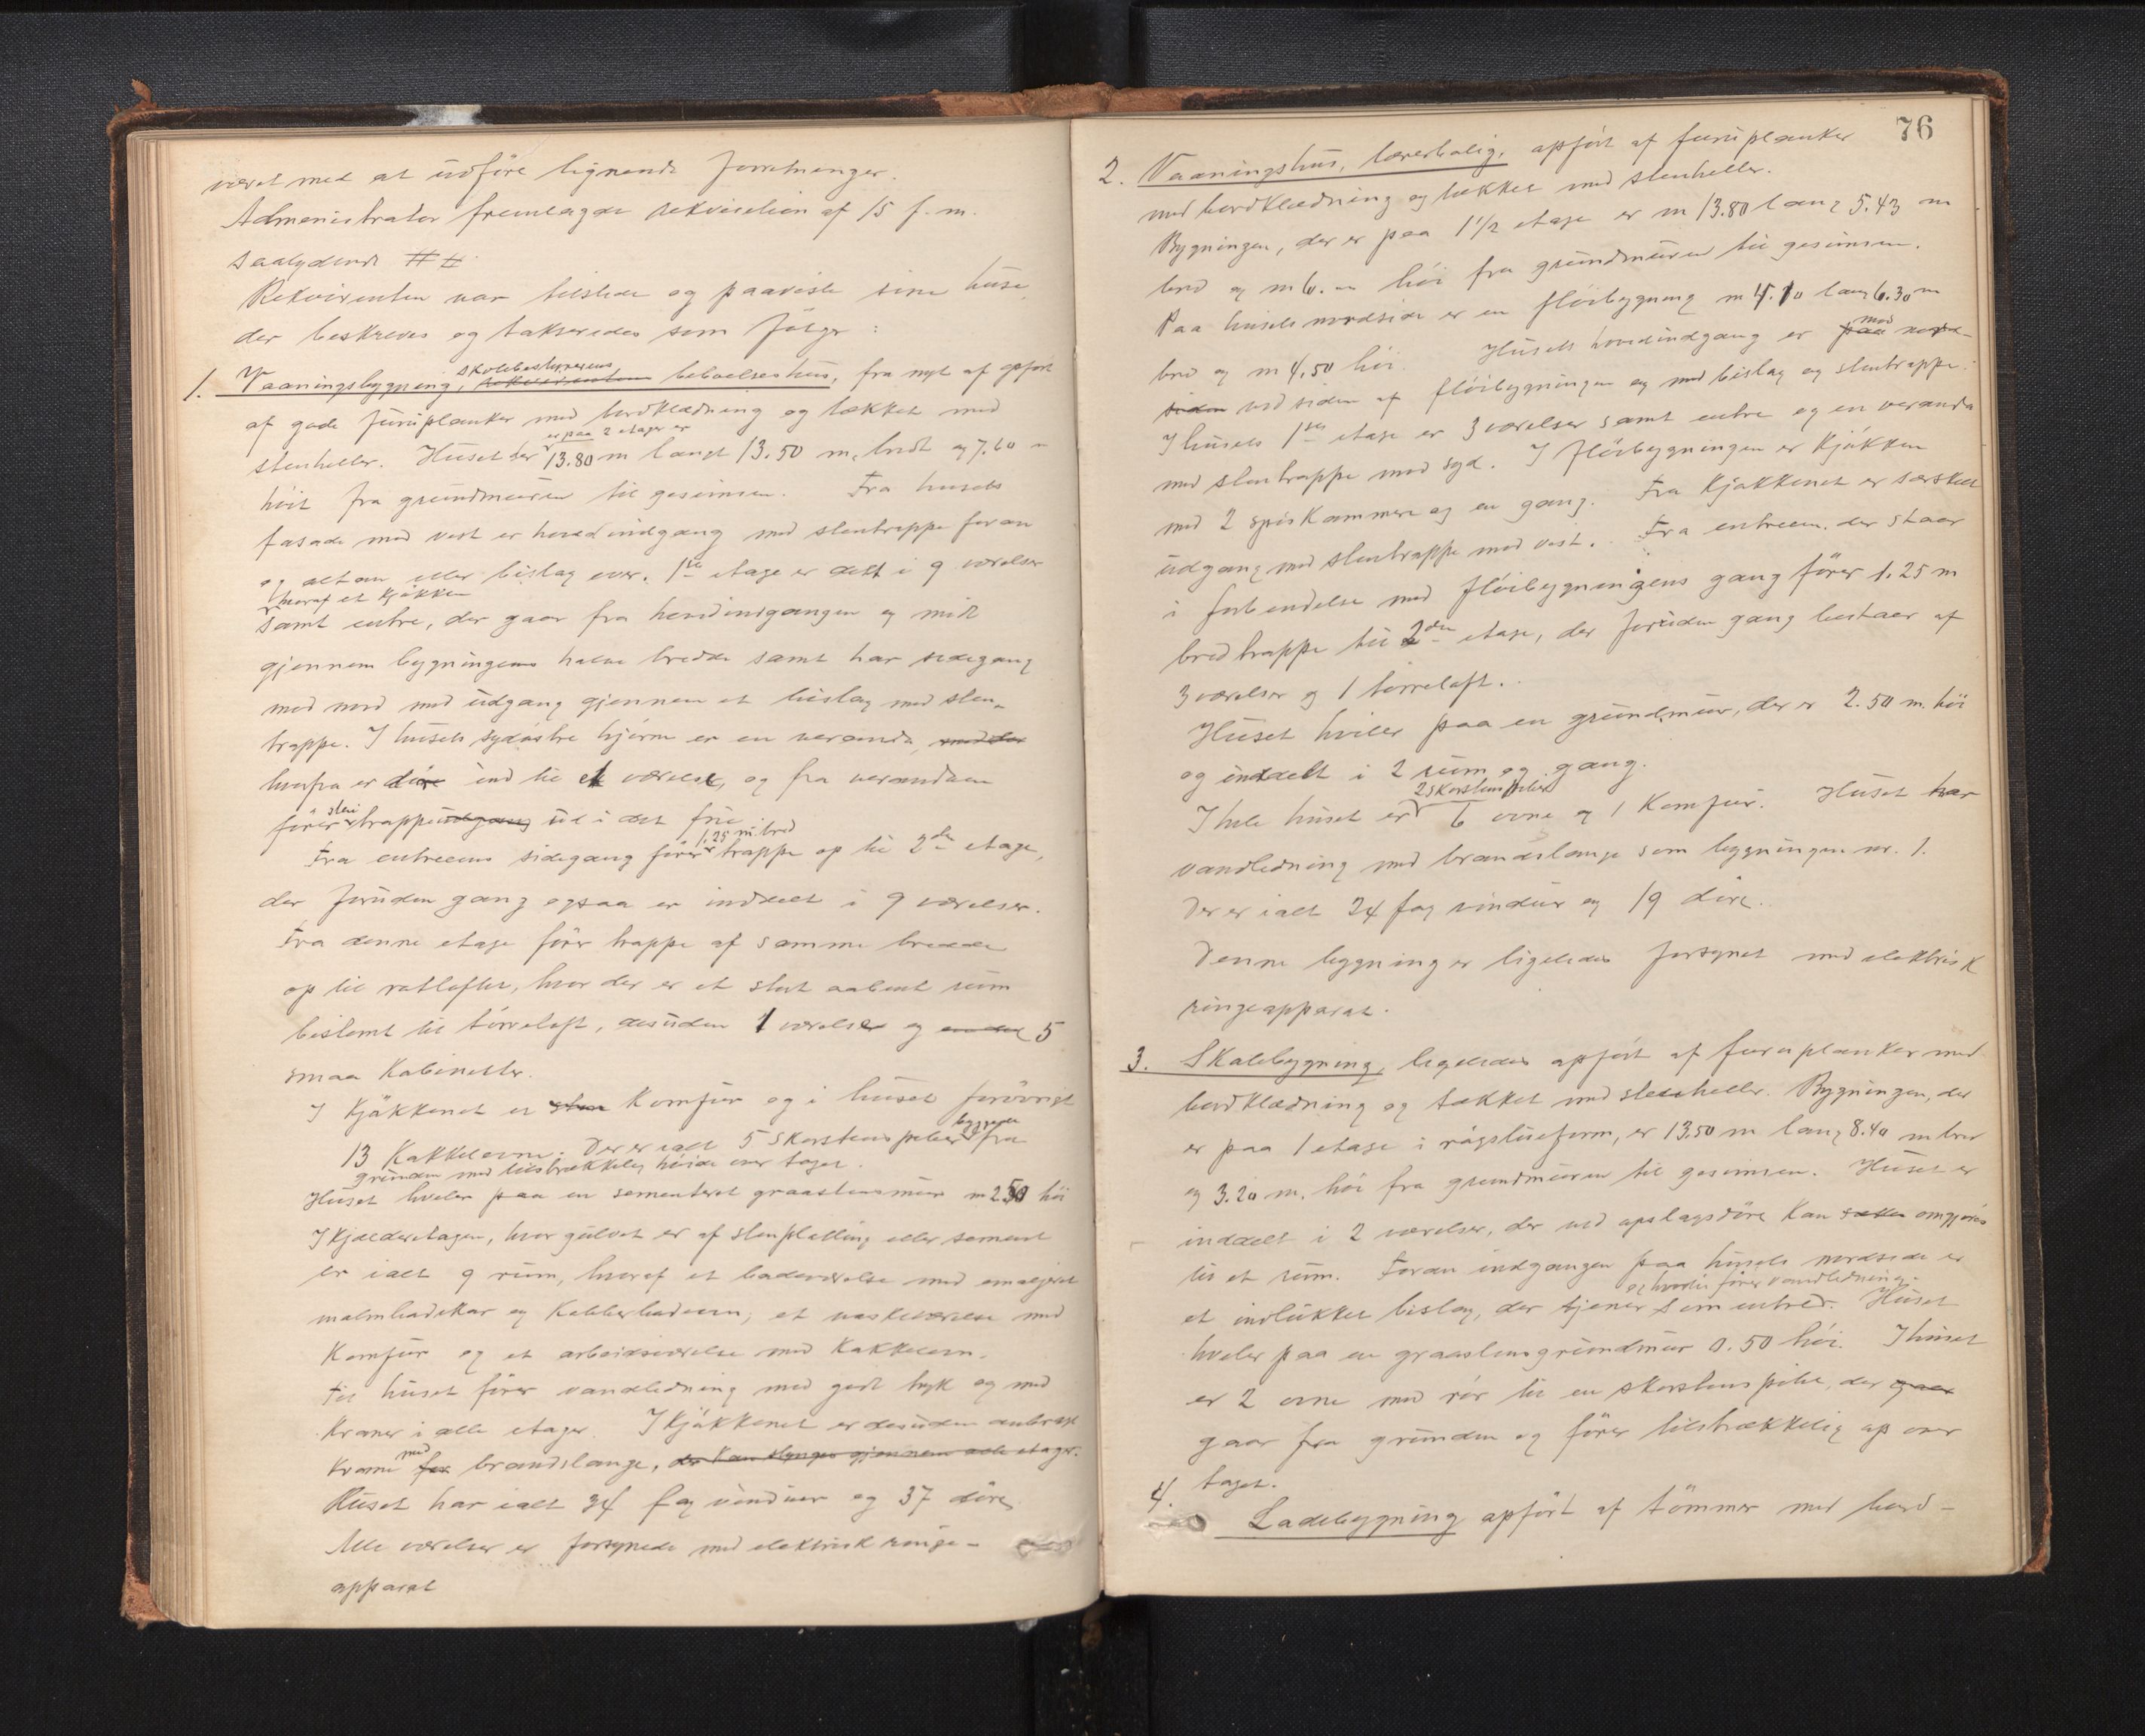 været med at udföre lignende forretninger.
Administrator fremlagde rekvisition af 15 f. m.
saalydende # #
Rekvirenten var tilstede og paaviste sine huse
der beskreves og takseredes som fölger:
1. Vaaningsbygning, skolebestyrerens beboelseshus, fra nyt af opfört
af gode furuplanker med bordklædning og tækket med
stenheller. Huset der er paa 2 etager er 13.80 m langt 13.50 m. bredt og 7.60 m
höit fra grundmuren til gesimsen. Fra husets
fasade mod vest er hovedindgang med stentrappe foran
og altan eller bislag over. 1ste etage er delt i 9 værelser
hvoraf et kjökken
samt entre, der gaar fra hovedindgangen og midt
gjennem bygningens halve bredde samt har sidegang
mod nord med udgang gjennem et bislag med sten-
trappe. I husets sydöstre hjörne er en veranda
hvorfra er döre ind til et værelse, og fra verandaen
förer stentrappe ud i det frie
Fra entreens sidegang förer 1.25 m bred trappe op til 2den etage,
der foruden gang ogsaa er inddelt i 9 værelser.
Fra denne etage förer trappe af samme bredde
op til rotloftet, hvor der er et stort aabent rum
bestemt til törreloft, desuden 1 værelse og 5
smaa kabinetter.
I kjökkenet er komfur og i huset forövrigt
13 kakkelovne. Der er ialt 5 skorstenspiber byggede fra
grunden med tilstrækkelig höide over taget.
Huset hviler paa en sementeret graastensmur m 2.50 höi
I kjælderetagen, hvor gulvet er af stenplatting eller sement
er ialt 9 rum, hvoraf et badeværelse med emaljeret
malmbadekar og kobberbadeovn, et vaskeværelse med
komfur og et arbeidsværelse med kakkelovn.
Til huset förer vandledning med godt tryk og med
kraner i alle etager. I kjökkenet er desuden anbragt
krane med brandslange, der kan slynges gjennem alle etager.
Huset har ialt 34 fag vinduer og 37 döre
Alle værelser er forsynede med elektrisk ringe-
apparat
76
2. Vaaningshus, lærerbolig, opfört af furuplanker
med bordklædning og tækket med stenheller.
Bygningen, der er paa 1 1/2 etage er m 13.80 lang 5.43 m
bred og m 6. höi fra grundmuren til gesimsen.
Paa husets nordside er en flöibygning m 4.10 lang 6.30 m
bred og m 4.50 höi. Husets hovedindgang er mod
ved siden af flöibygningen og med bislag og stentrappe.
I husets 1ste etage er 3 værelser samt entre og en veranda
med stentrappe mod syd. I flöibygningen er kjökken
med 2 spiskammere og en gang. Fra kjökkenet er særskilt
udgang med stentrappe mod vest. Fra entreen, der staar
i forbindelse med flöibygningens gang förer 1.25 m
bred trappe til 2den etage, der foruden gang bestaar af
3 værelser og 1 törreloft.
Huset hviler paa en grundmur, der er 2.50 m. höi
og inddelt i 2 rum og gang.
I hele huset er 2 skorstenspiber 6 ovne og 1 komfur. Huset har
vandledning med brandslange som bygningen nr. 1.
Der er ialt 24 fag vinduer og 19 döre.
Denne bygning er ligeledes forsynet med elektrisk
ringeapparat.
3. Skolebygning, ligeledes opfört af furuplanker med
bordklædning og tækket med stenheller. Bygningen, der
er paa 1 etage i rögstueform, er 13.50 m lang 8.40 m bred
og 3.20 m. höi fra grundmuren til gesimsen. Huset er
inddelt i 2 værelser, der ved opslagsdöre kan omgjöres
til et rum. Foran indgangen paa husets nordside er
et indlukket bislag, der tjener som entre og hvortil förer vandledning. Huset
hviler paa en graastensgrundmur 0.50 höi. I huset
er 2 ovne med rör til en skorstenspibe, der
gaar fra grunden og förer tilstrækkelig op over
taget.
4. Ladebygning opfört af tömmer med bord-